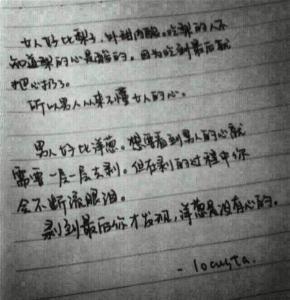 女人好比梨子，外甜内酸。吃梨的人不
知道梨的心是酸的，因为吃到最后就
把心扔了。
所以男人从来不懂女人的心。
男人好比洋葱。想要看到男人的心就
需要一层一层去剥。但在剥的过程中你
会不断流眼泪。
剥到最后你才发现，洋葱是没有心的。
- locusta.